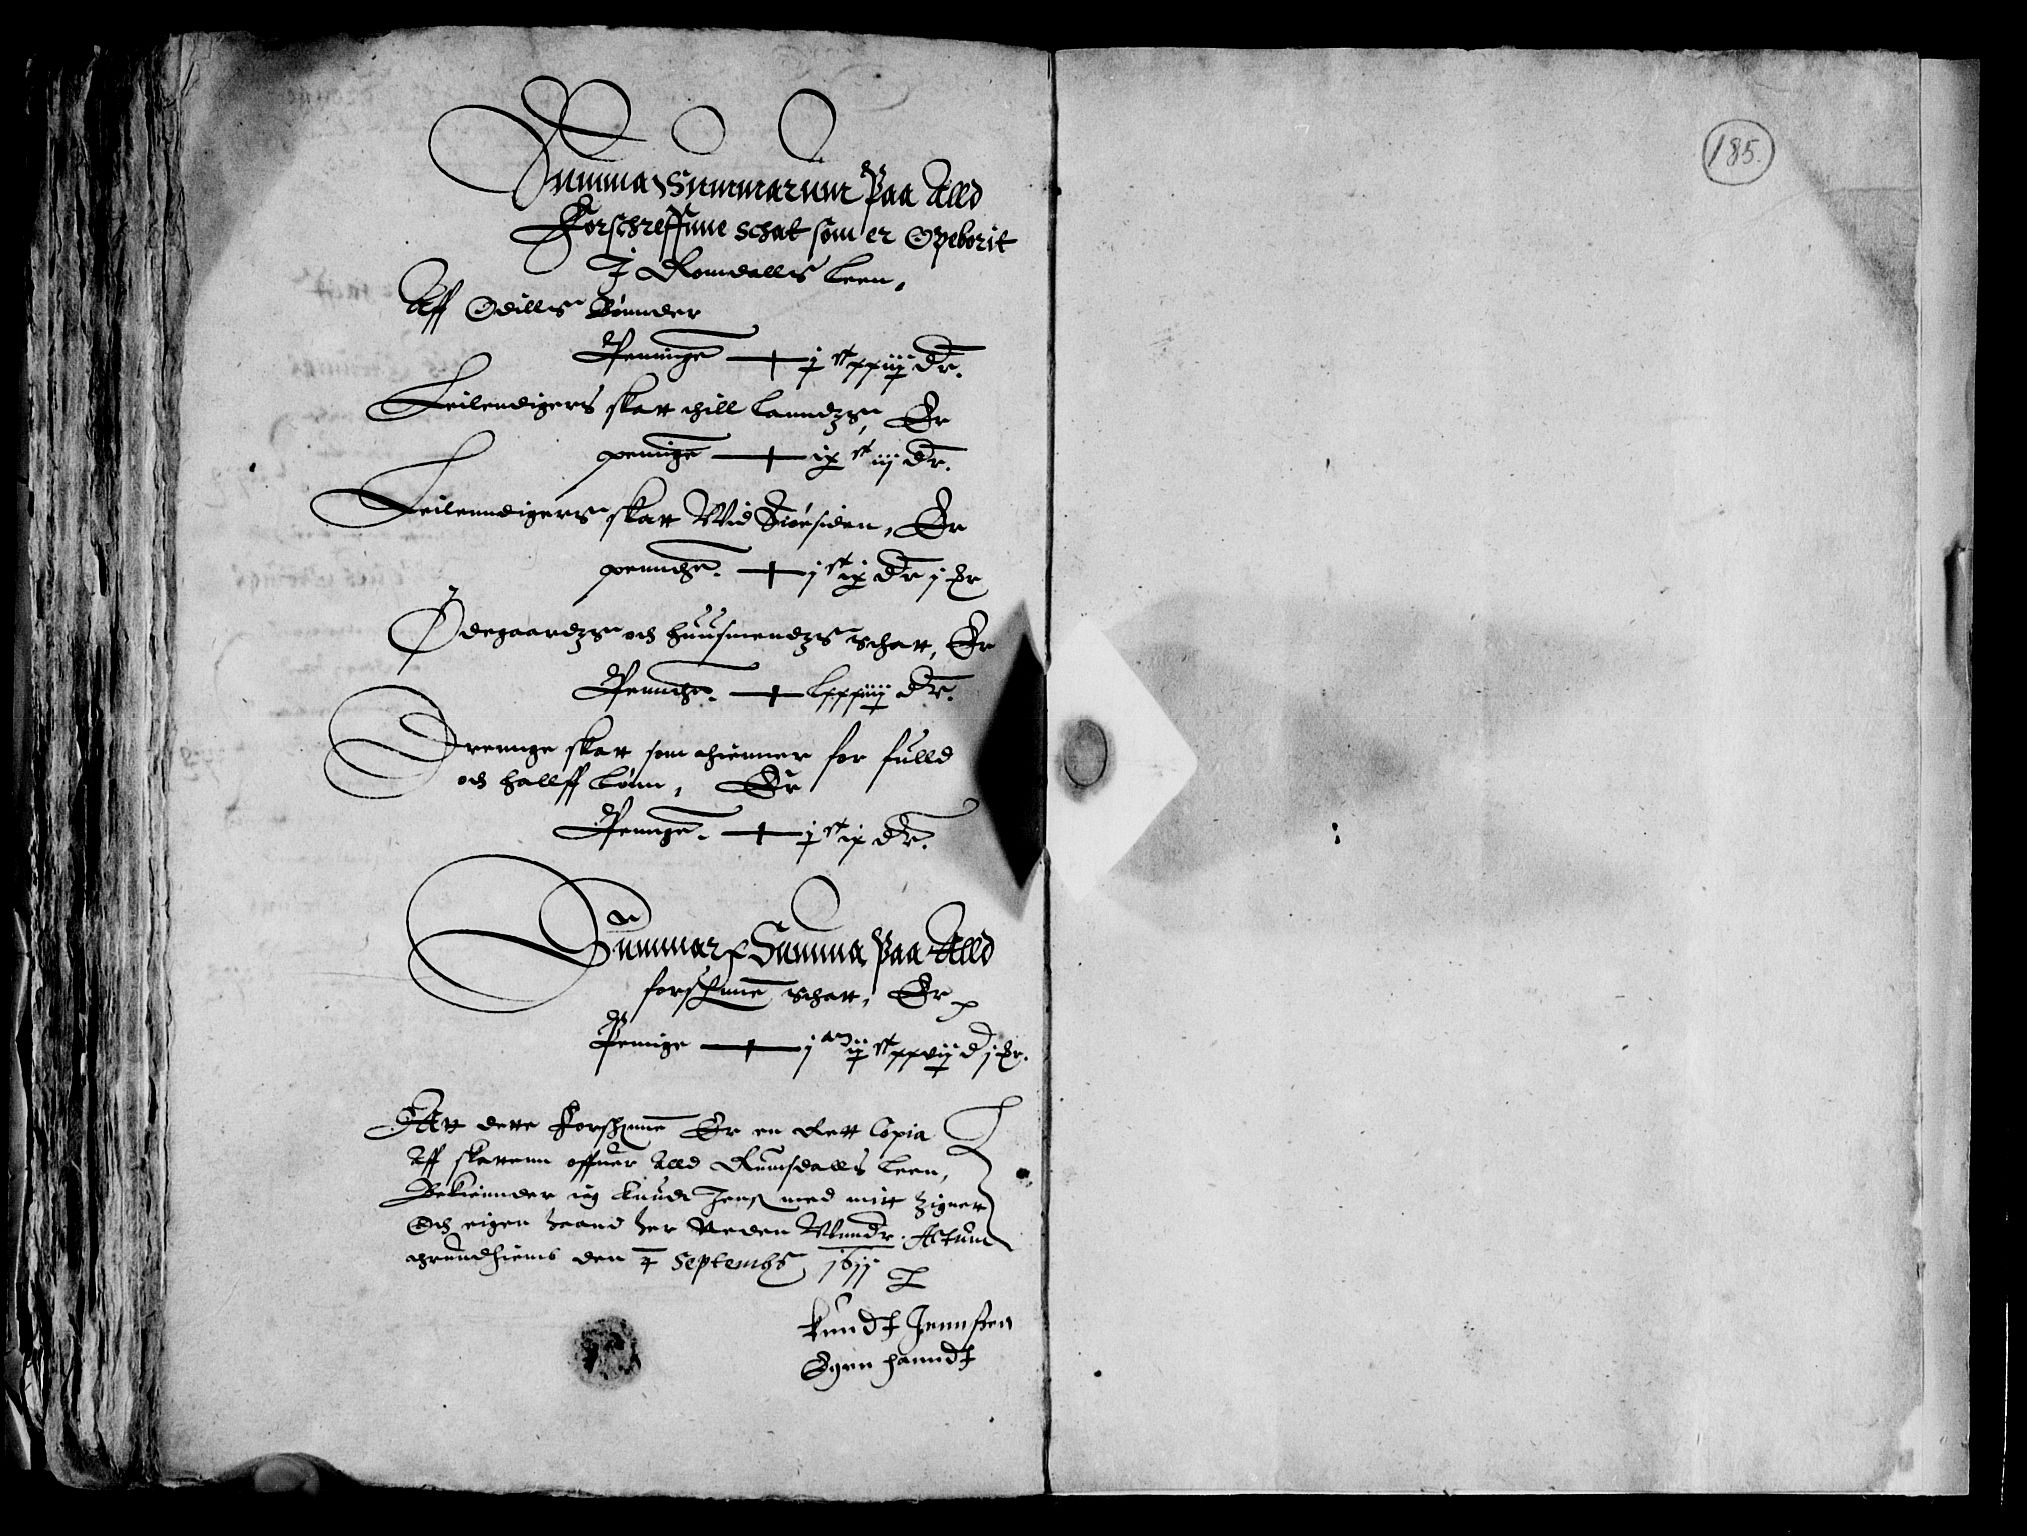 Summa Summarum Paa Alld
Forschreffnne schat som er Opeborit
J Romdalls Leen,
Aff Odills Bønnder
Peninge — j ct xxiiij dr.
Leilendigers skatt thill Lanndzs, Er
peninge — ix ct iij dr.
Leilenndigers skatt Wid Siøesiden, Er
penninge. — j ct ix dr j Ør
Ødegaardzs och huusmendzs schatt, Er
Penninge. — lxxxiiij dr.
Drennge skatt som thienner for fulld
och hallff Lønn, Er
Peninge. — j ct ix dr.
Summar Summa Paa Alld
forschne schatt, Er
Peninge — j m ij ct xxvij d j Ør.
Att dette Forschne Er en Rett Copia
Aff skattenn offuer Alld Rumsdalls Leen,
Bekiennder ieg Knudt Jens med mitt Zignett
Och eigen haand her Neden Wnndr. Actum
thrundhiems den 4 Septembs 1611
Knudt Jennssen
Egen hanndt
185.